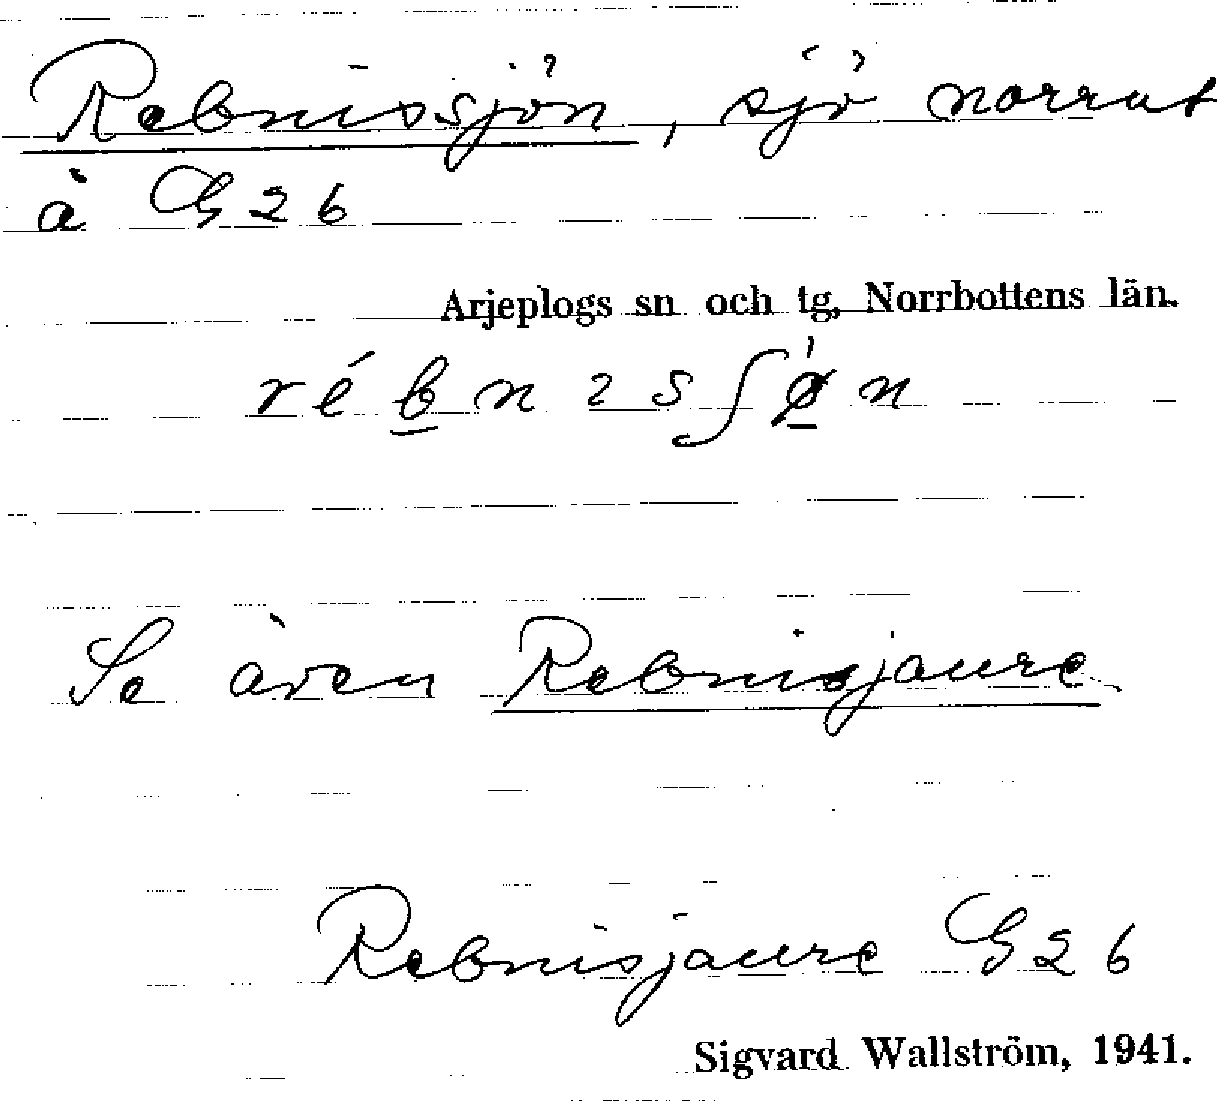 Rebnissjön, sjö norrut
å G26
Arjeplogs sn och tg, Norrbottens län.
Se även Rebnisjaure
Rebnisjaure G26
Sigvard Wallström, 1941.